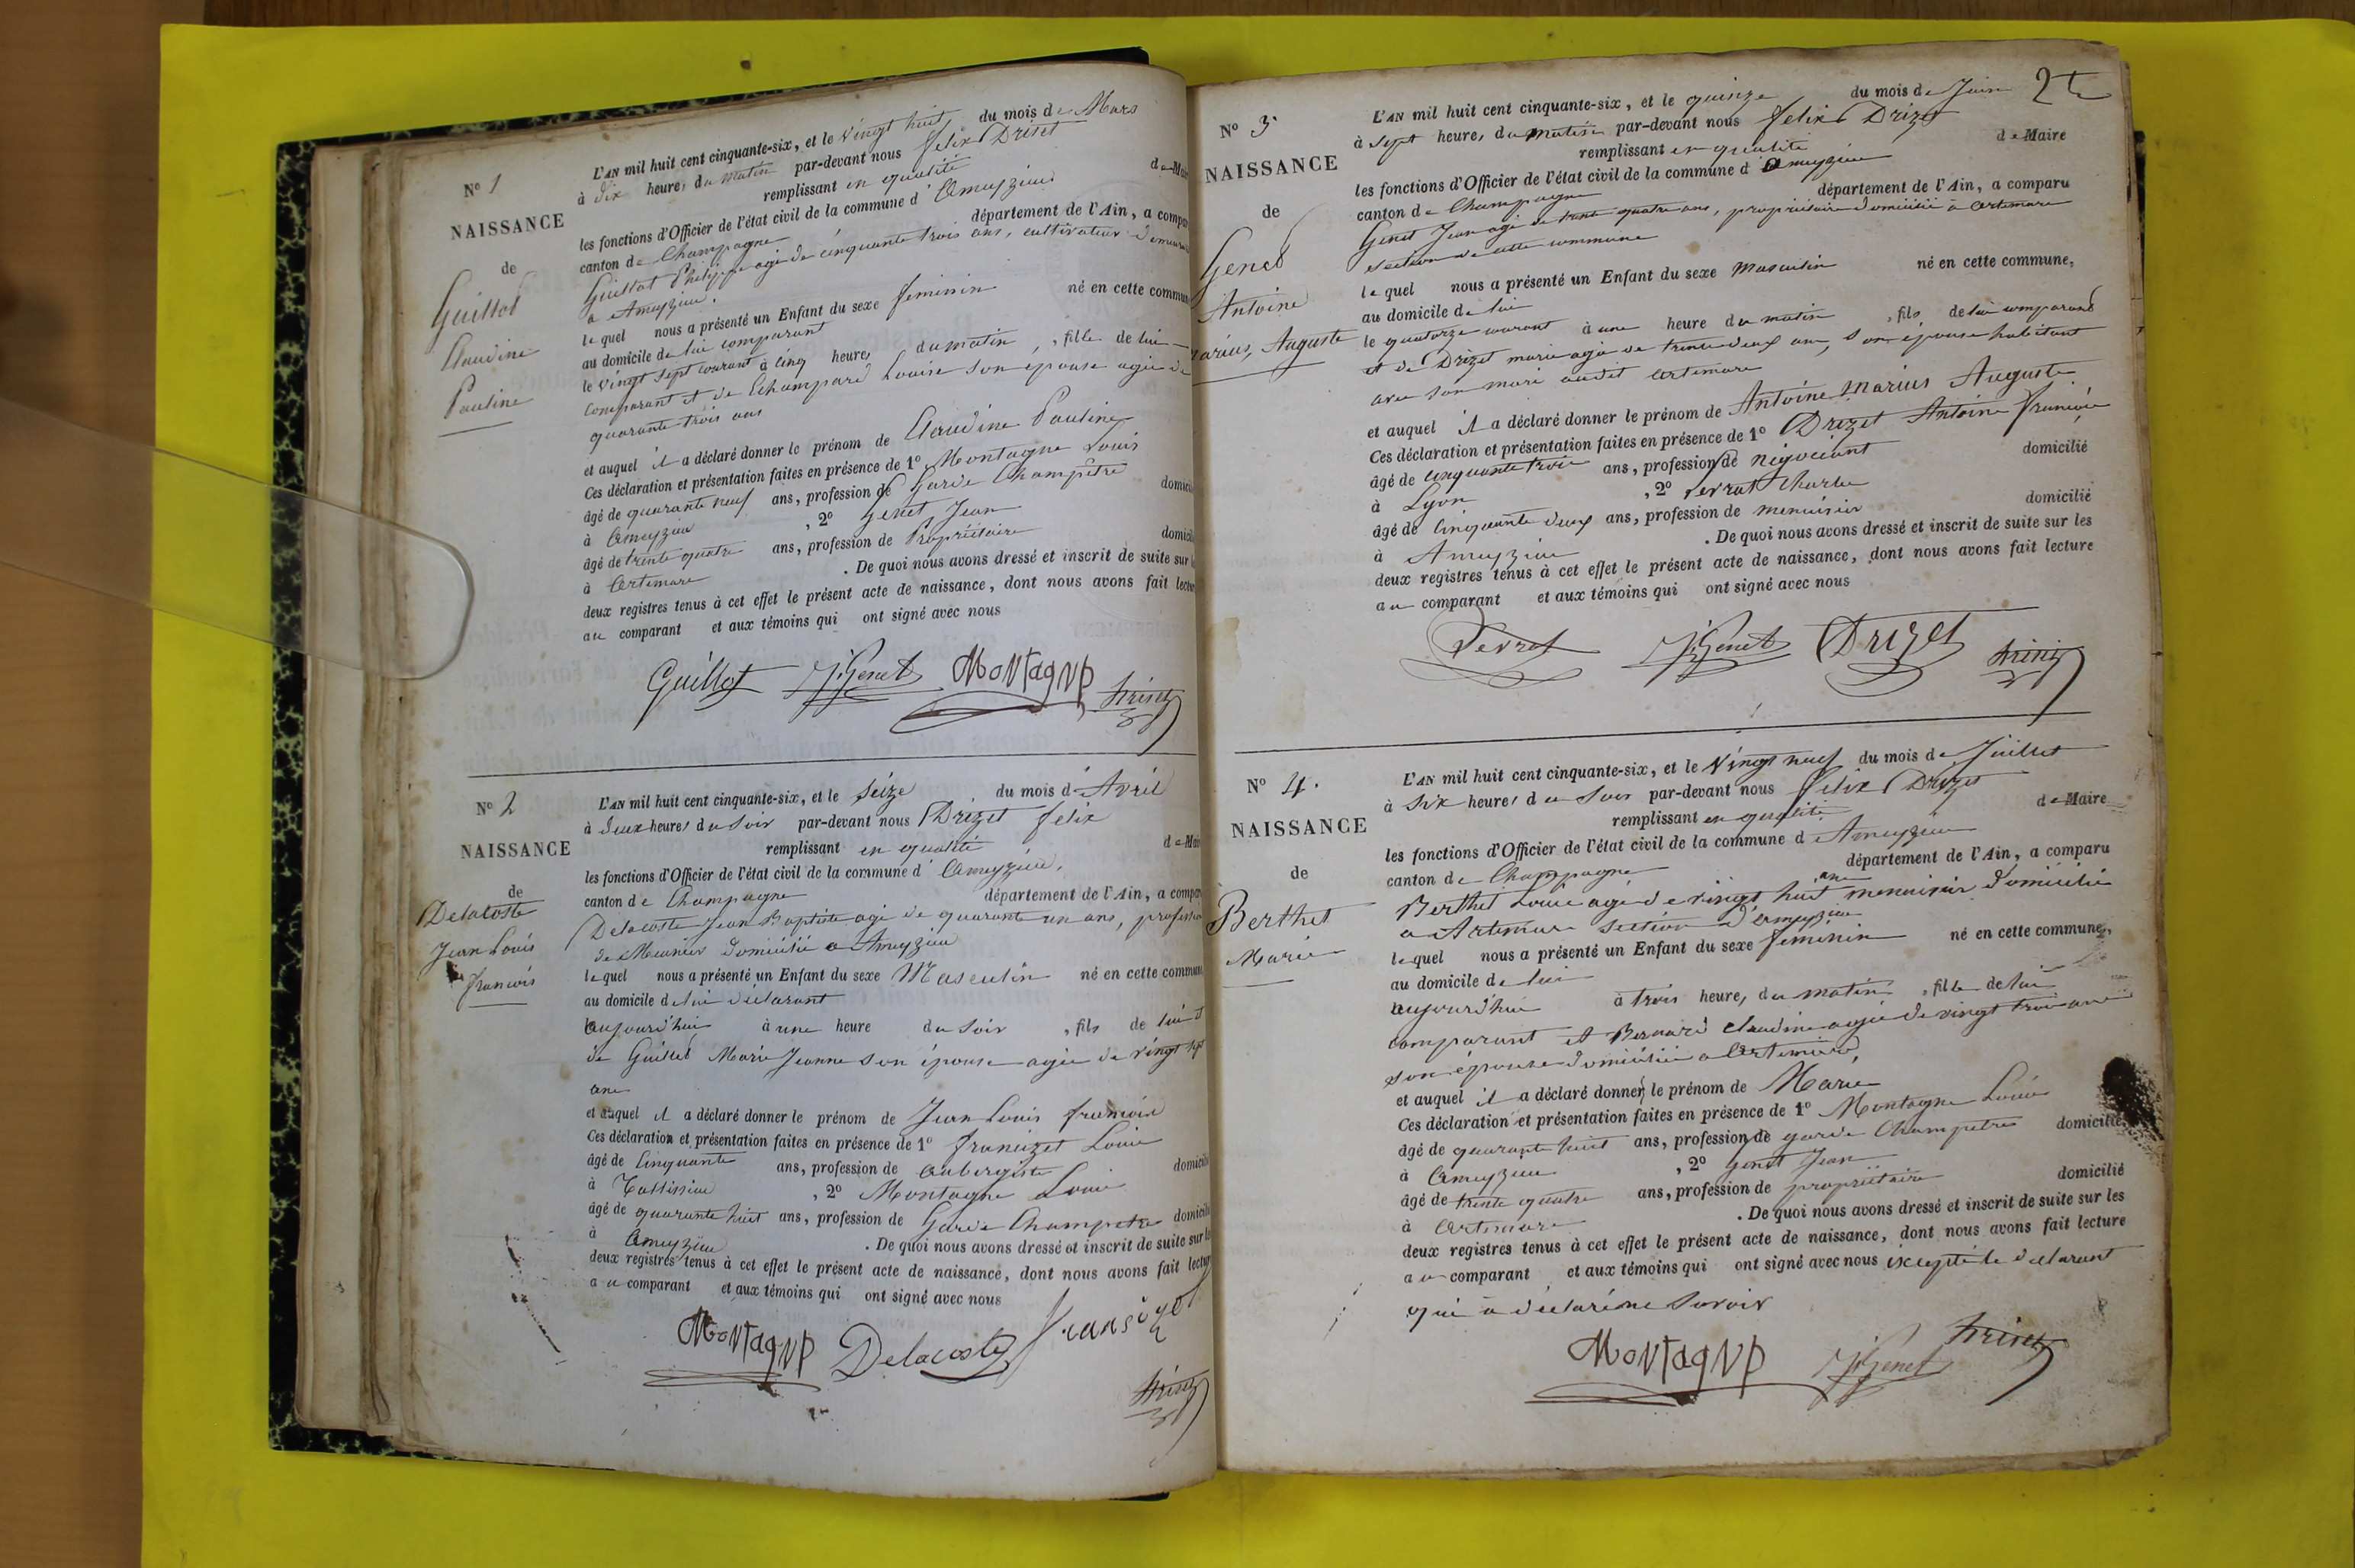 N° 1
NAISSANCE
de
Guillot
Claudine
Pauline
L'AN mil huit cent cinquante-six, et le vingt huit du mois de Mars
à dix heures du matin par-devant nous felix Driset
remplissant en qualité de Mai
les fonctions d'Officier de l'état civil de la commune d'Ameyzieu
canton de Champagne département de l'Ain, a compar
Guillot Philippe agé de cinquante trois ans, cultivateur demeurant
a Ameyzieu.
lequel nous a présenté un Enfant du sexe feminin né en cette commun
au domicile de lui comparant
le vingt sept courant à cinq heures du matin, fille de lui
comparant et de Champard Louise son épouse agée de
quarante trois ans
et auquel il a déclaré donner le prénom de Claudine Pauline
Ces déclaration et présentation faites en présence de 1° Montagne Louis
âgé de quarante neuf ans, profession de garde Champêtre domicil
à Ameyzieu , 2° Genet Jean
âgé de trente quatre ans, profession de Propriétaire domicil
à Artemare . De quoi nous avons dressé et inscrit de suite sur l
deux registres tenus à cet effet le présent acte de naissance, dont nous avons fait lectur
au comparant et aux témoins qui ont signé avec nous
Guillot J. Genet MoNTagNP
N° 2
NAISSANCE
de
Delacoste
Jean Louis
francois
L'AN mil huit cent cinquante-six, et le seize du mois d'Avril
à deux heures du soir par-devant nous Drizet felix
remplissant en qualité de Mai
les fonctions d'Officier de l'état civil de la commune d'Ameyzieu,
canton de Champagne département de l'Ain, a compar
Delacoste Jean Baptiste agé de quarante un ans, profession
de Meunier domicilié a Ameyzieu
lequel nous a présenté un Enfant du sexe Masculin né en cette commun
au domicile de lui déclarant
aujourd'hui à une heure du soir, fils de lui et
de Guillot Marie Jeanne son épouse agée de vingt sept
ans
et auquel il a déclaré donner le prénom de Jean Louis francois
Ces déclaration et présentation faites en présence de 1° francizet Louis
âgé de cinquante ans, profession de aubergiste domicil
à Talissieu , 2° Montagne Louis
âgé de quarante huit ans, profession de Garde Champetre domicil
à Ameyzieu . De quoi nous avons dressé et inscrit de suite sur le
deux registres tenus à cet effet le présent acte de naissance, dont nous avons fait lectur
au comparant et aux témoins qui ont signé avec nous
MoNTagNP Delacoste
2
N° 3
NAISSANCE
de
Genet
Antoine
arius, Auguste
L'AN mil huit cent cinquante-six, et le quinze du mois de Juin
à sept heures du matin par-devant nous felix Drizet
remplissant en qualité de Maire
les fonctions d'Officier de l'état civil de la commune d'Ameyzieu
canton de Champagne département de l'Ain, a comparu
Genet Jean agé de trente quatre ans, propriétaire domicilié à Artemare
section de cette commune
lequel nous a présenté un Enfant du sexe Masculin né en cette commune,
au domicile de lui
le quatorze courant à une heure du matin, fils de lui comparant
et de Drizet marie agée de trente deux ans, son épouse habitant
avec son mari audit Artemare
et auquel il a déclaré donner le prénom de Antoine Marius Auguste
Ces déclaration et présentation faites en présence de 1° Drizet Antoine francois
âgé de cinquante trois ans, profession de négociant domicilié
à Lyon , 2° Charles
âgé de cinquante deux ans, profession de menuisier domicilié
à Ameyzieu . De quoi nous avons dressé et inscrit de suite sur les
deux registres tenus à cet effet le présent acte de naissance, dont nous avons fait lecture
au comparant et aux témoins qui ont signé avec nous
J. Genet Drizet
N° 4.
NAISSANCE
de
Berthet
Marie
L'AN mil huit cent cinquante-six, et le vingt neuf du mois de Juillet
à six heures du soir par-devant nous felix Drizet
remplissant en qualité de Maire
les fonctions d'Officier de l'état civil de la commune d'Ameyzieu
canton de Champagne département de l'Ain, a comparu
Berthet Louis agé de vingt huit ans menuisier domicilié
a Artemare section d'Ameyzieu
lequel nous a présenté un Enfant du sexe feminin né en cette commune,
au domicile de lui
aujourd'hui à trois heures du matin, fille de lui
comparant et Bernard Claudine agée de vingt trois ans
son épouse domiciliée a Artemare,
et auquel il a déclaré donner le prénom de Marie
Ces déclaration et présentation faites en présence de 1° Montagne Louis
âgé de quarante huit ans, profession de garde Champetre domicilié
à Ameyzieu , 2° Genet Jean
âgé de trente quatre ans, profession de propriétaire domicilié
à Artemare . De quoi nous avons dressé et inscrit de suite sur les
deux registres tenus à cet effet le présent acte de naissance, dont nous avons fait lecture
au comparant et aux témoins qui ont signé avec nous excepté le déclarant
qui a déclaré ne savoir
MoNTagNP J. Genet